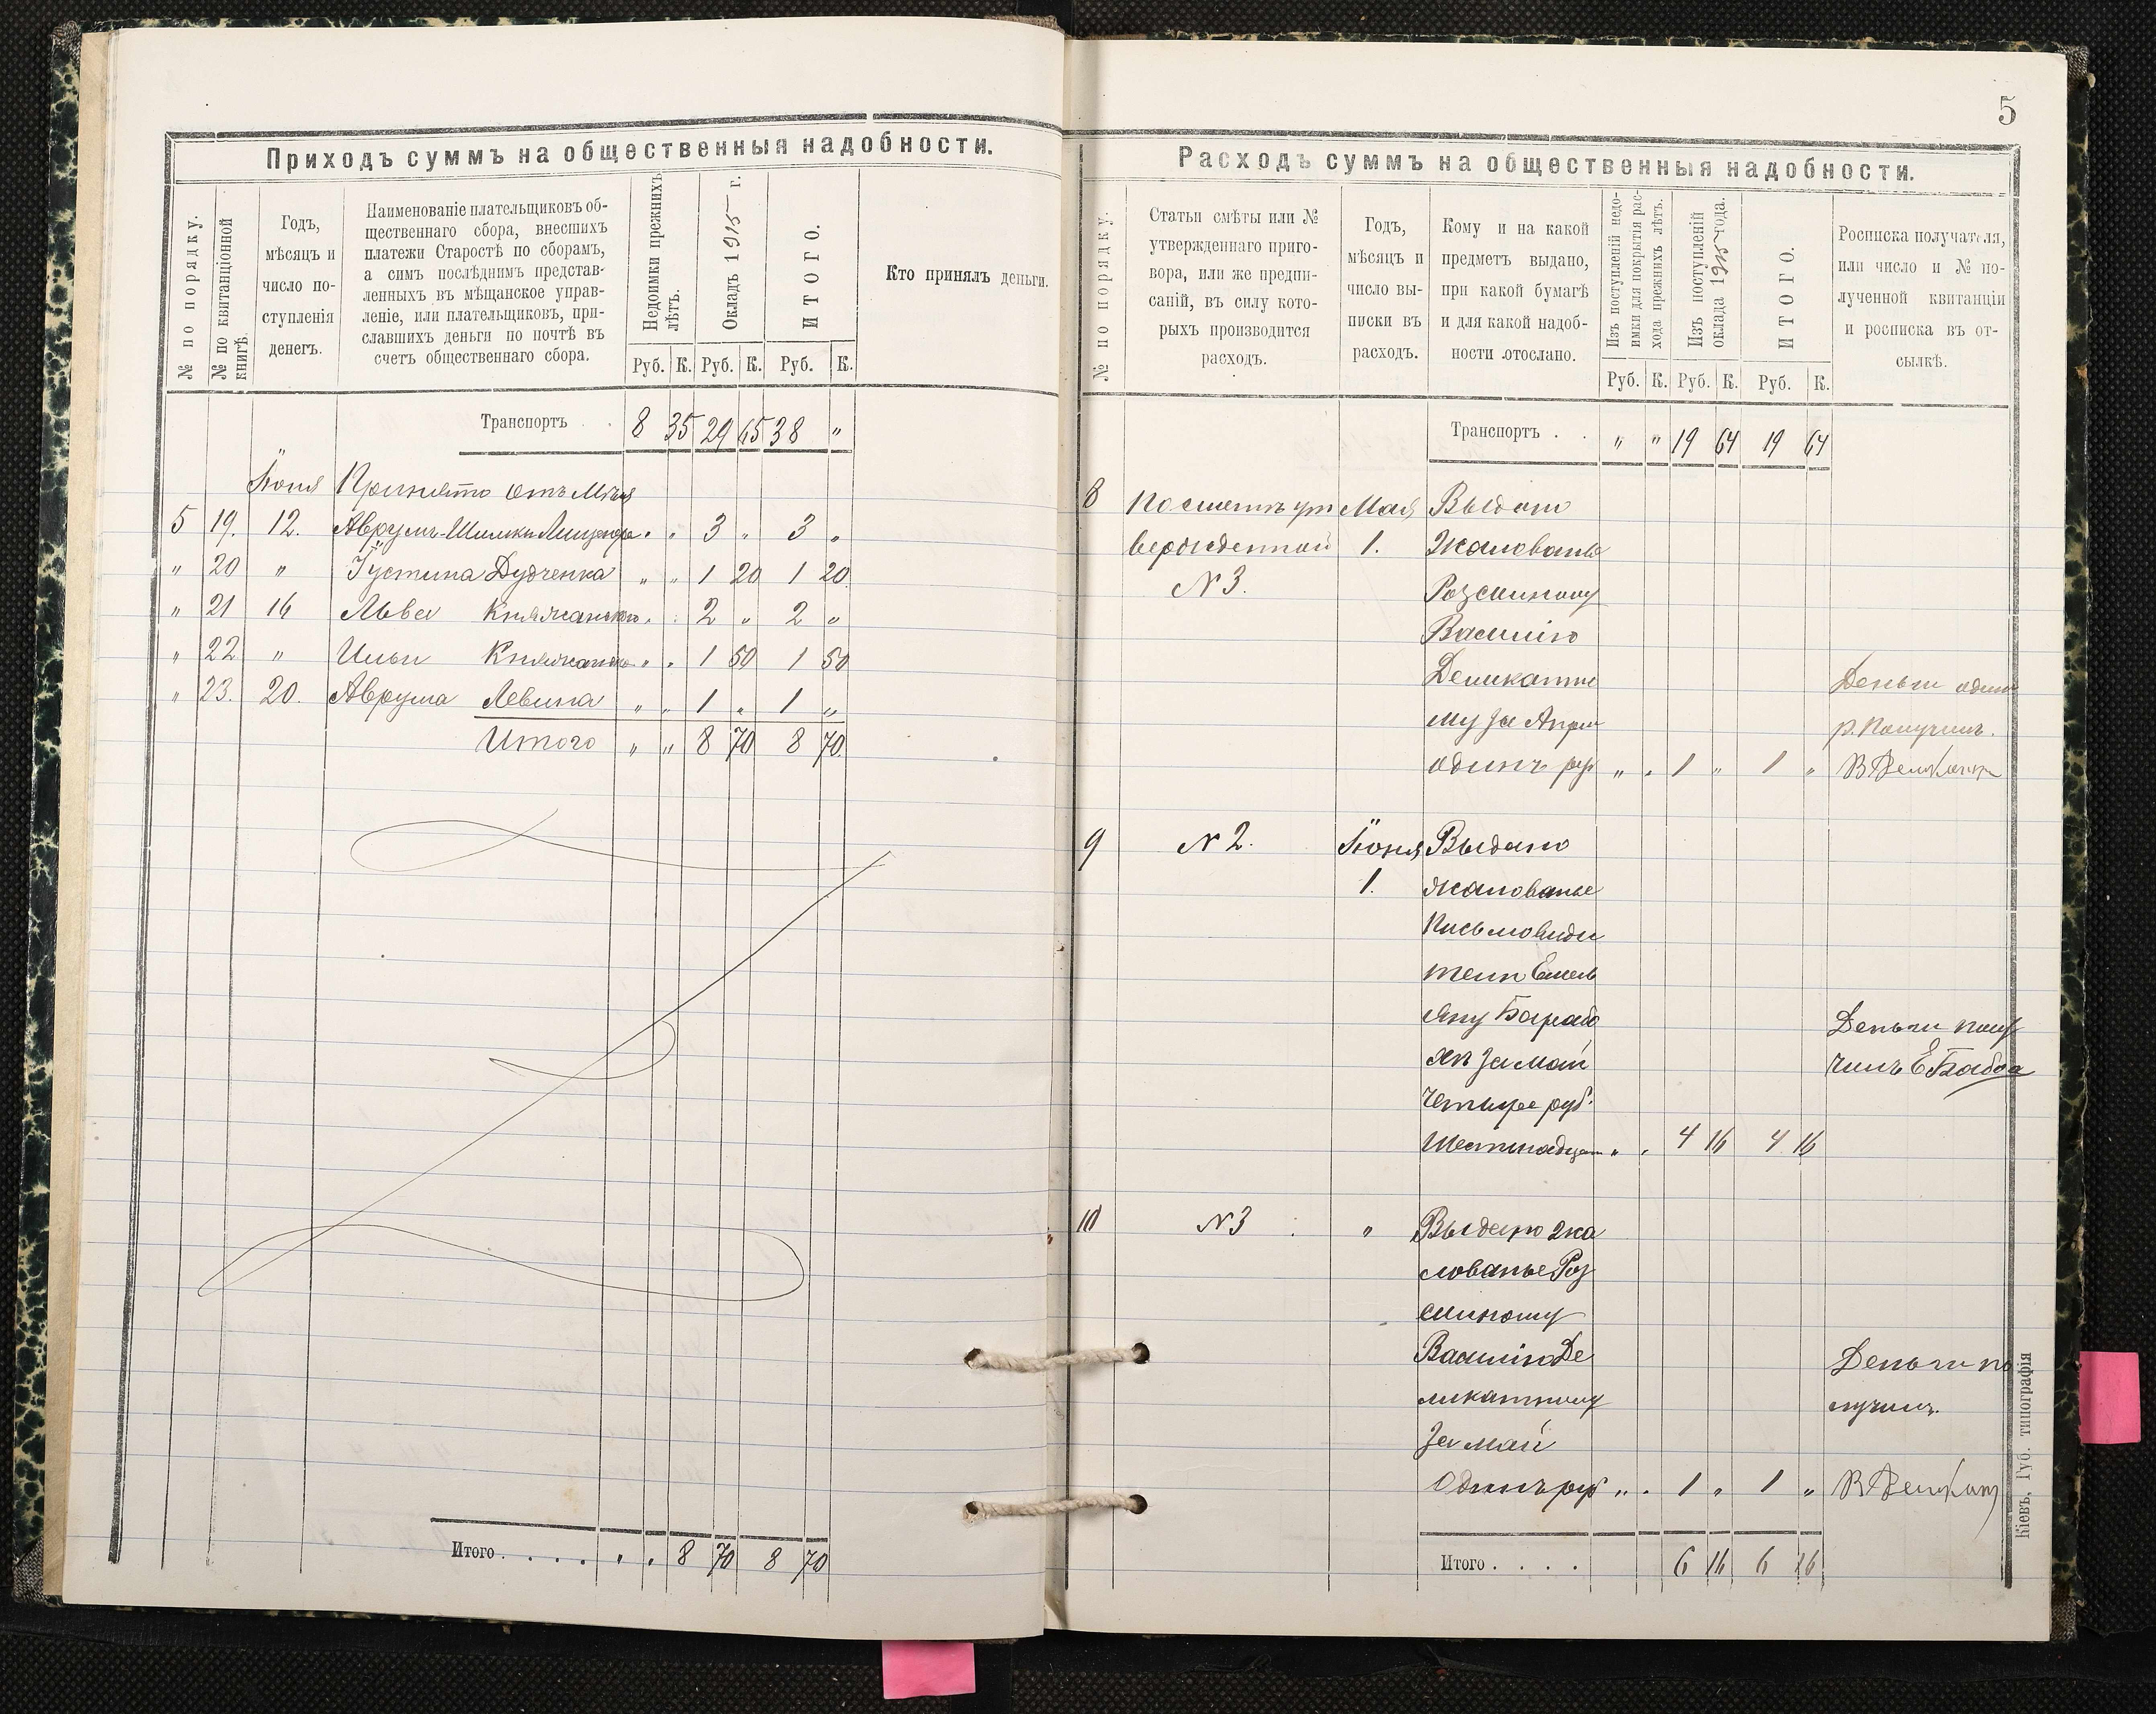 Приходъ суммъ на общественныя надобности.
№ по порядку.
№ по квитанціонной
книгѣ.
Годъ,
мѣсяцъ и
число по-
ступленія
денегъ.
Наименованіе плательщиковъ об-
щественнаго сбора, внесшихъ
платежи Старостѣ по сборамъ,
а симъ послѣднимъ представ-
ленныхъ въ мѣщанское управ-
леніе, или плательщиковъ, при-
славшихъ деньги по почтѣ въ
счетъ общественнаго сбора.
Недоимки прежнихъ
лѣтъ.
Окладъ 1915 г.
ИТОГО.
Кто принялъ деньги.
Руб. К. Руб. К. Руб. К.
Транспортъ . . 8 35 29 65 38 „
Іюня Принято отъ
5 19. 12. Аврумъ-Шлимки „ „ 3 „ 3 „
„ 20 „ Густина Дудченка „ „ 1 20 1 20
„ 21 16 Льва „ „ 2 „ 2 „
„ 22 „ Ильи „ „ 1 50 1 50
„ 23. 20. Аврума Левина „ „ 1 „ 1 „
Итого „ „ 8 70 8 70.
Итого . . . . . „ „ 8 70 8 70
5
Расходъ суммъ на общественныя надобности.
№ по порядку.
Статьи смѣты или №
утвержденнаго приго-
вора, или же предпи-
саній, въ силу кото-
рыхъ производится
расходъ.
Годъ,
мѣсяцъ и
число вы-
писки въ
расходъ.
Кому и на какой
предметъ выдано,
при какой бумагѣ
и для какой надоб-
ности отослано.
Изъ поступленій недо-
имки для покрытія рас-
хода прежнихъ лѣтъ.
Изъ поступленій
оклада 1915 года.
ИТОГО.
Росписка получателя,
или число и № по-
лученной квитанціи
и росписка въ от-
сылкѣ.
Руб. К. Руб. К. Руб. К.
Транспортъ . . „ „ 19 64 19 64
8 По смѣтѣ ут Мая Выдано
вержденной 1. Жалованье
№ 3. Розсильному
Василію
Деликатно
му за Апрѣл
одинъ руб „ „ 1 „ 1 „
Деньги одинъ
р. Получилъ.
В Деликатн
9 № 2. Іюня Выдано
1. жалованье
Письмоводи
телю Емель
яну Барабо
хѣ за Май
Четыре руб.
Шестнадцат „ „ 4 16 4 16
Деньги полу
чилъ Е
10 № 3 „ Выдано жа
лованье Роз
сильному
Василію Де
ликатному
за май
Одинъ руб „ „ 1 „ 1 „
Деньги по
лучилъ.
В Деликатн
Итого . . . . 6 16 6 16
Кіевъ, Губ. типографія